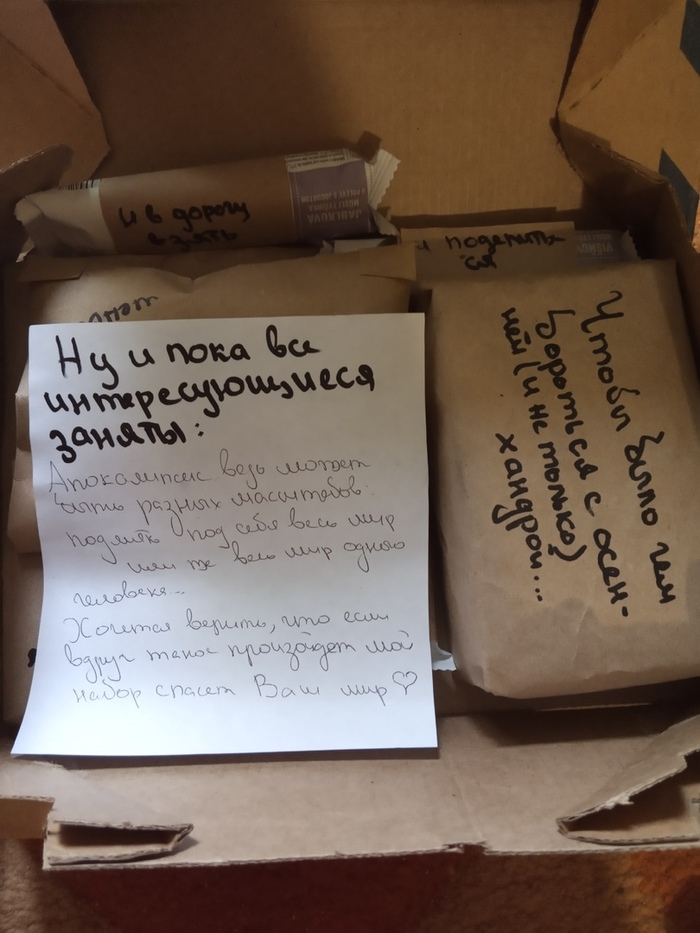 и в дорогу
взять
JABLKOVÁ
MÜSLI TYČINKA
V POLEVE S JOGURTOM
и поделить
ся
VIŠŇOV
Ну и пока все
интересующиеся
заняты:
Апокалипсис ведь может
быть разных масштабов:
подмять под себя весь мир
или же весь мир одного
человека...
Хочется верить, что если
вдруг такое произойдет мой
набор спасет Ваш мир ♡
Чтобы было чем
бороться с осен-
ней (и не только)
хандрой...